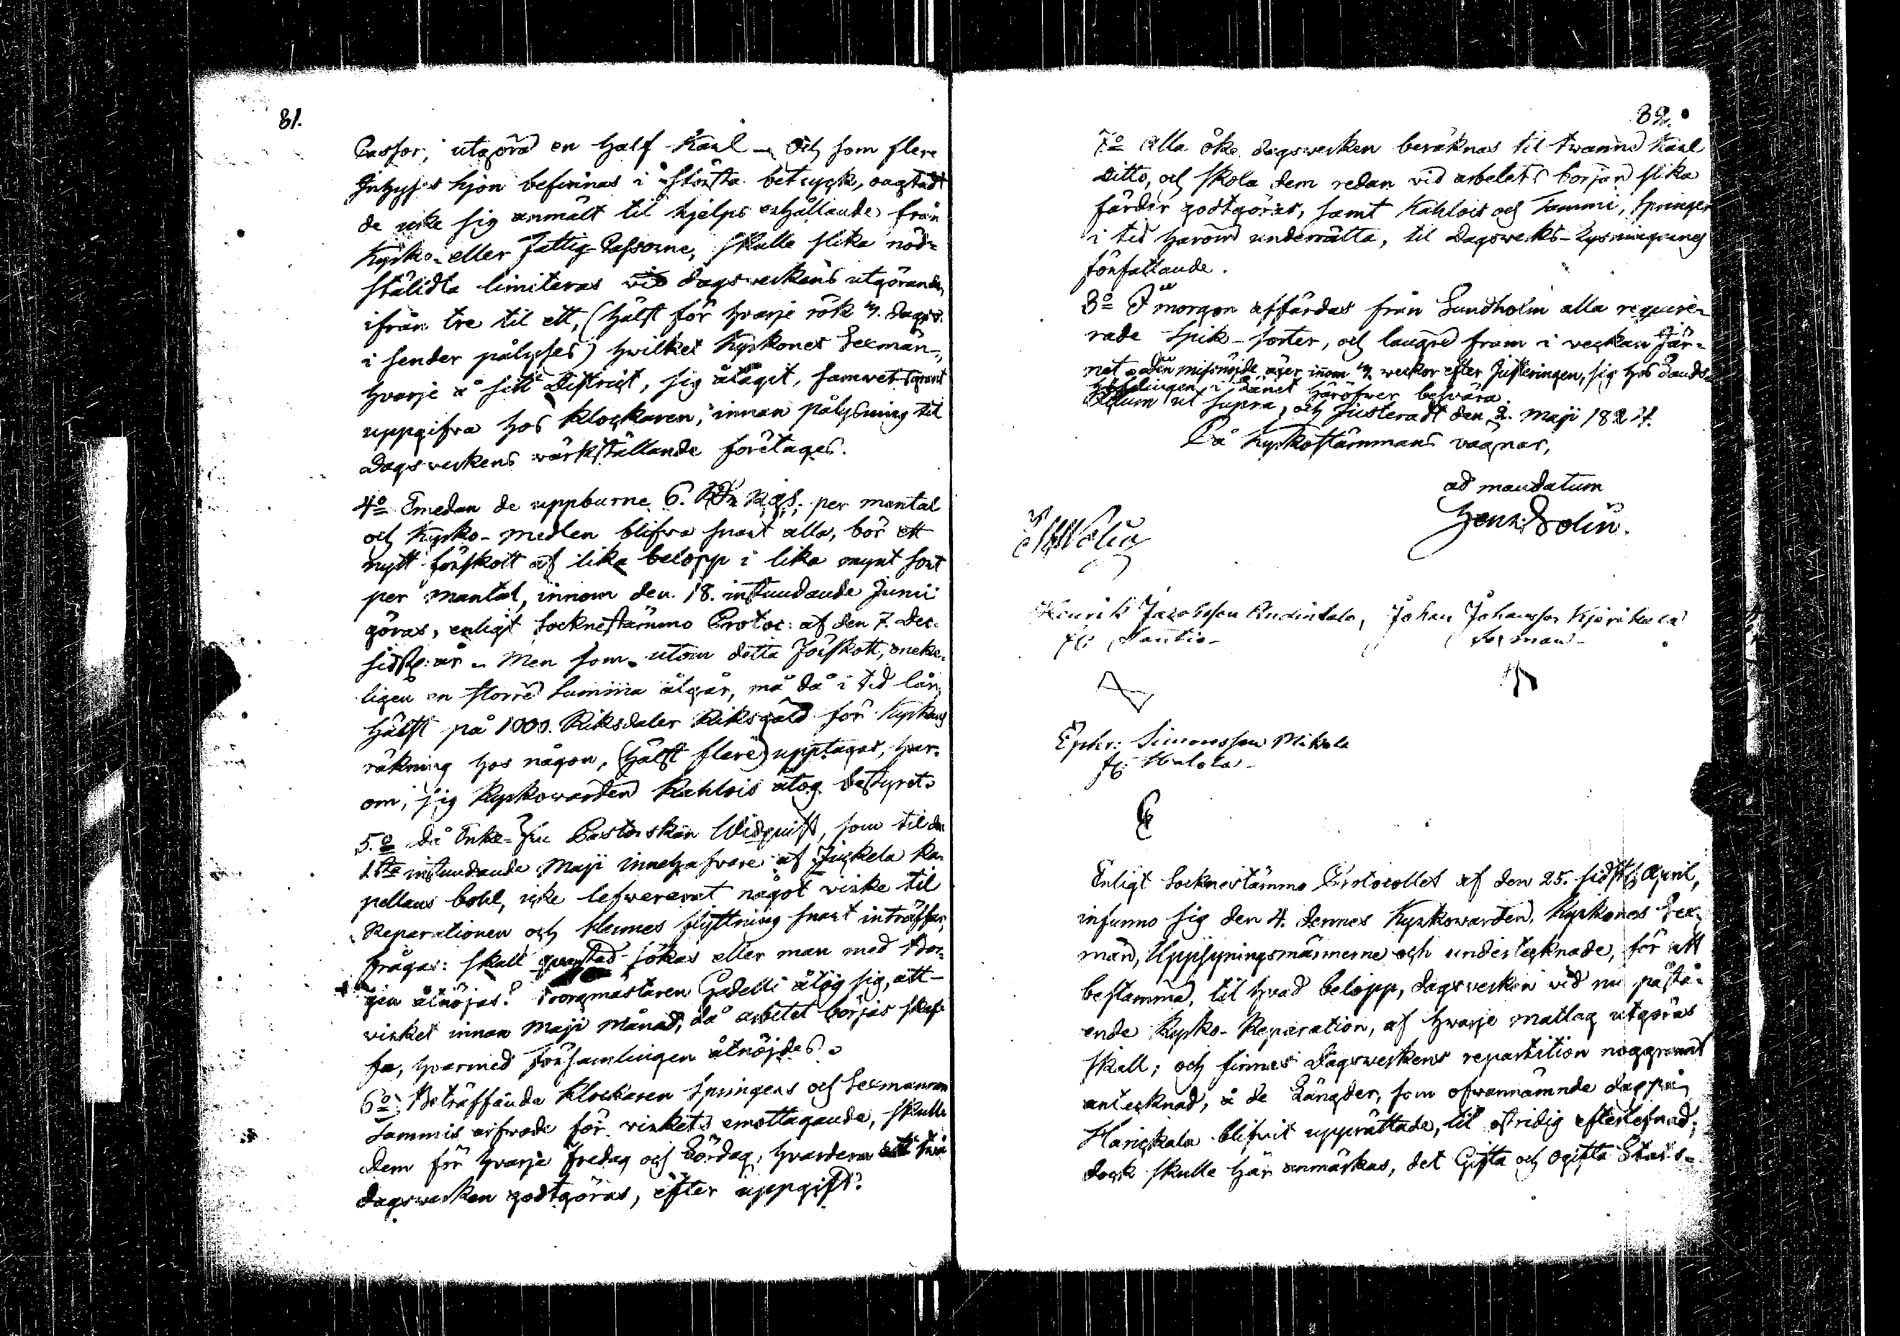 81.
Passor, utgöra en half Karl – Och som flere
Inhyses hjon befinnas i största betryck, oagtadt
de icke sig anmält til hjelps erhållande från
Kyrko- eller Fattig Cassorne, skulle slika nöd-
stälda limiteras vid dagsverkens utgörande,
ifrån tre til ett, (hälst för hvarje rök 4. dagsv.
i sender pålyses) hvilket Kyrkones Sexmän,
hvarje å sitt District, sig åtagit, samvetsgrant
uppgifva hos Klockaren, innan pålysning til
Dagsverkens värkställande företages.
4:o Emedan de uppburne 6. RD:r Rgs. per mantal
och Kyrko-medlen blifva snart alla, bör ett
nytt förskott af lika belopp i lika mynt sort
per mantal, innom den 18. instundande Junii
göras, enligt Socknestämmo Protoc: af den 7. Dec.
sidstl: år. Men som utom detta Förskott, oneke-
ligen en större Summa åtgår, må då i tid lån,
hälst på 1000. Riksdaler Riksgäld för Kyrkans
räkning hos någon, (hälst flere) upptagas, hvar-
om, sig Kyrkovärden Kahlois åtog bestyret.
5:o Då Enke-Fru Pastorskan Widquist, som til den
1sta instundande Maji innehafvare af Juckela Ka-
pellans bohl, icke lefvererat något virke til
Reparationen och hennes flyttning snart inträffar,
frågas: skall qvarstad sökas eller man med Bor-
gen åtnöjas? Borgmästaren Gadelli åtog sig, att
virket innan Maji månad, då arbetet börjas skaf-
fa, hvarmed församlingen åtnöjdes.
6:o Beträffande Klockaren Springers och Sexmannen
Tammis arfvode för virkets emottagande, skulle
dem för hvarje Fredag och Lördag, hvardera två
dagsverken godtgöras, efter uppgift.
82.
7:o Alla öke dagsverken beräknas til tvänne Karl
Ditto, och skola dem redan vid arbetets början slika
färder godtgöras, samt Kahlois och Tammi, Springer
i tid härom underrätta, til Dagsverks-Lysningarnes
författande.
8:o I morgon affärdas från Sundholm alla require-
rade Spik-sorter, och langre fram i veckan Jär-
net. Den missnöjde äger inom 4 veckor efter Justeringen, sig hos Lands
Höfdingen i Länet häröfver besvära.
Datum ut supra, och Justeradt den 2. Maji 1824.
På Kyrkostämmans vägnar,
ad mandatum
Henr: Polin.
Henrik Jacobsson
Johan Johansson
Sexman
Ephr: Simonsson Mikola
Enligt Socknestämmo Protocollet af den 25. sidstl. April,
infunno sig den 4. dennes Kyrkovärden, Kyrkones Sex-
män, Uppsyningsmännerne och undertecknade, för att
bestämma, til hvad belopp, dagsverken vid nu påstå-
ende Kyrko-Reparation, af hvarje matlag utgöras
skall; och finnes Dagsverkens repartition noggrannt
antecknad, å de Längder, som ofvannämnde dag på
blifvit upprättade, til ostridig efterlefnad;
dock skulle här anmärkas, det Gifta och ogifta